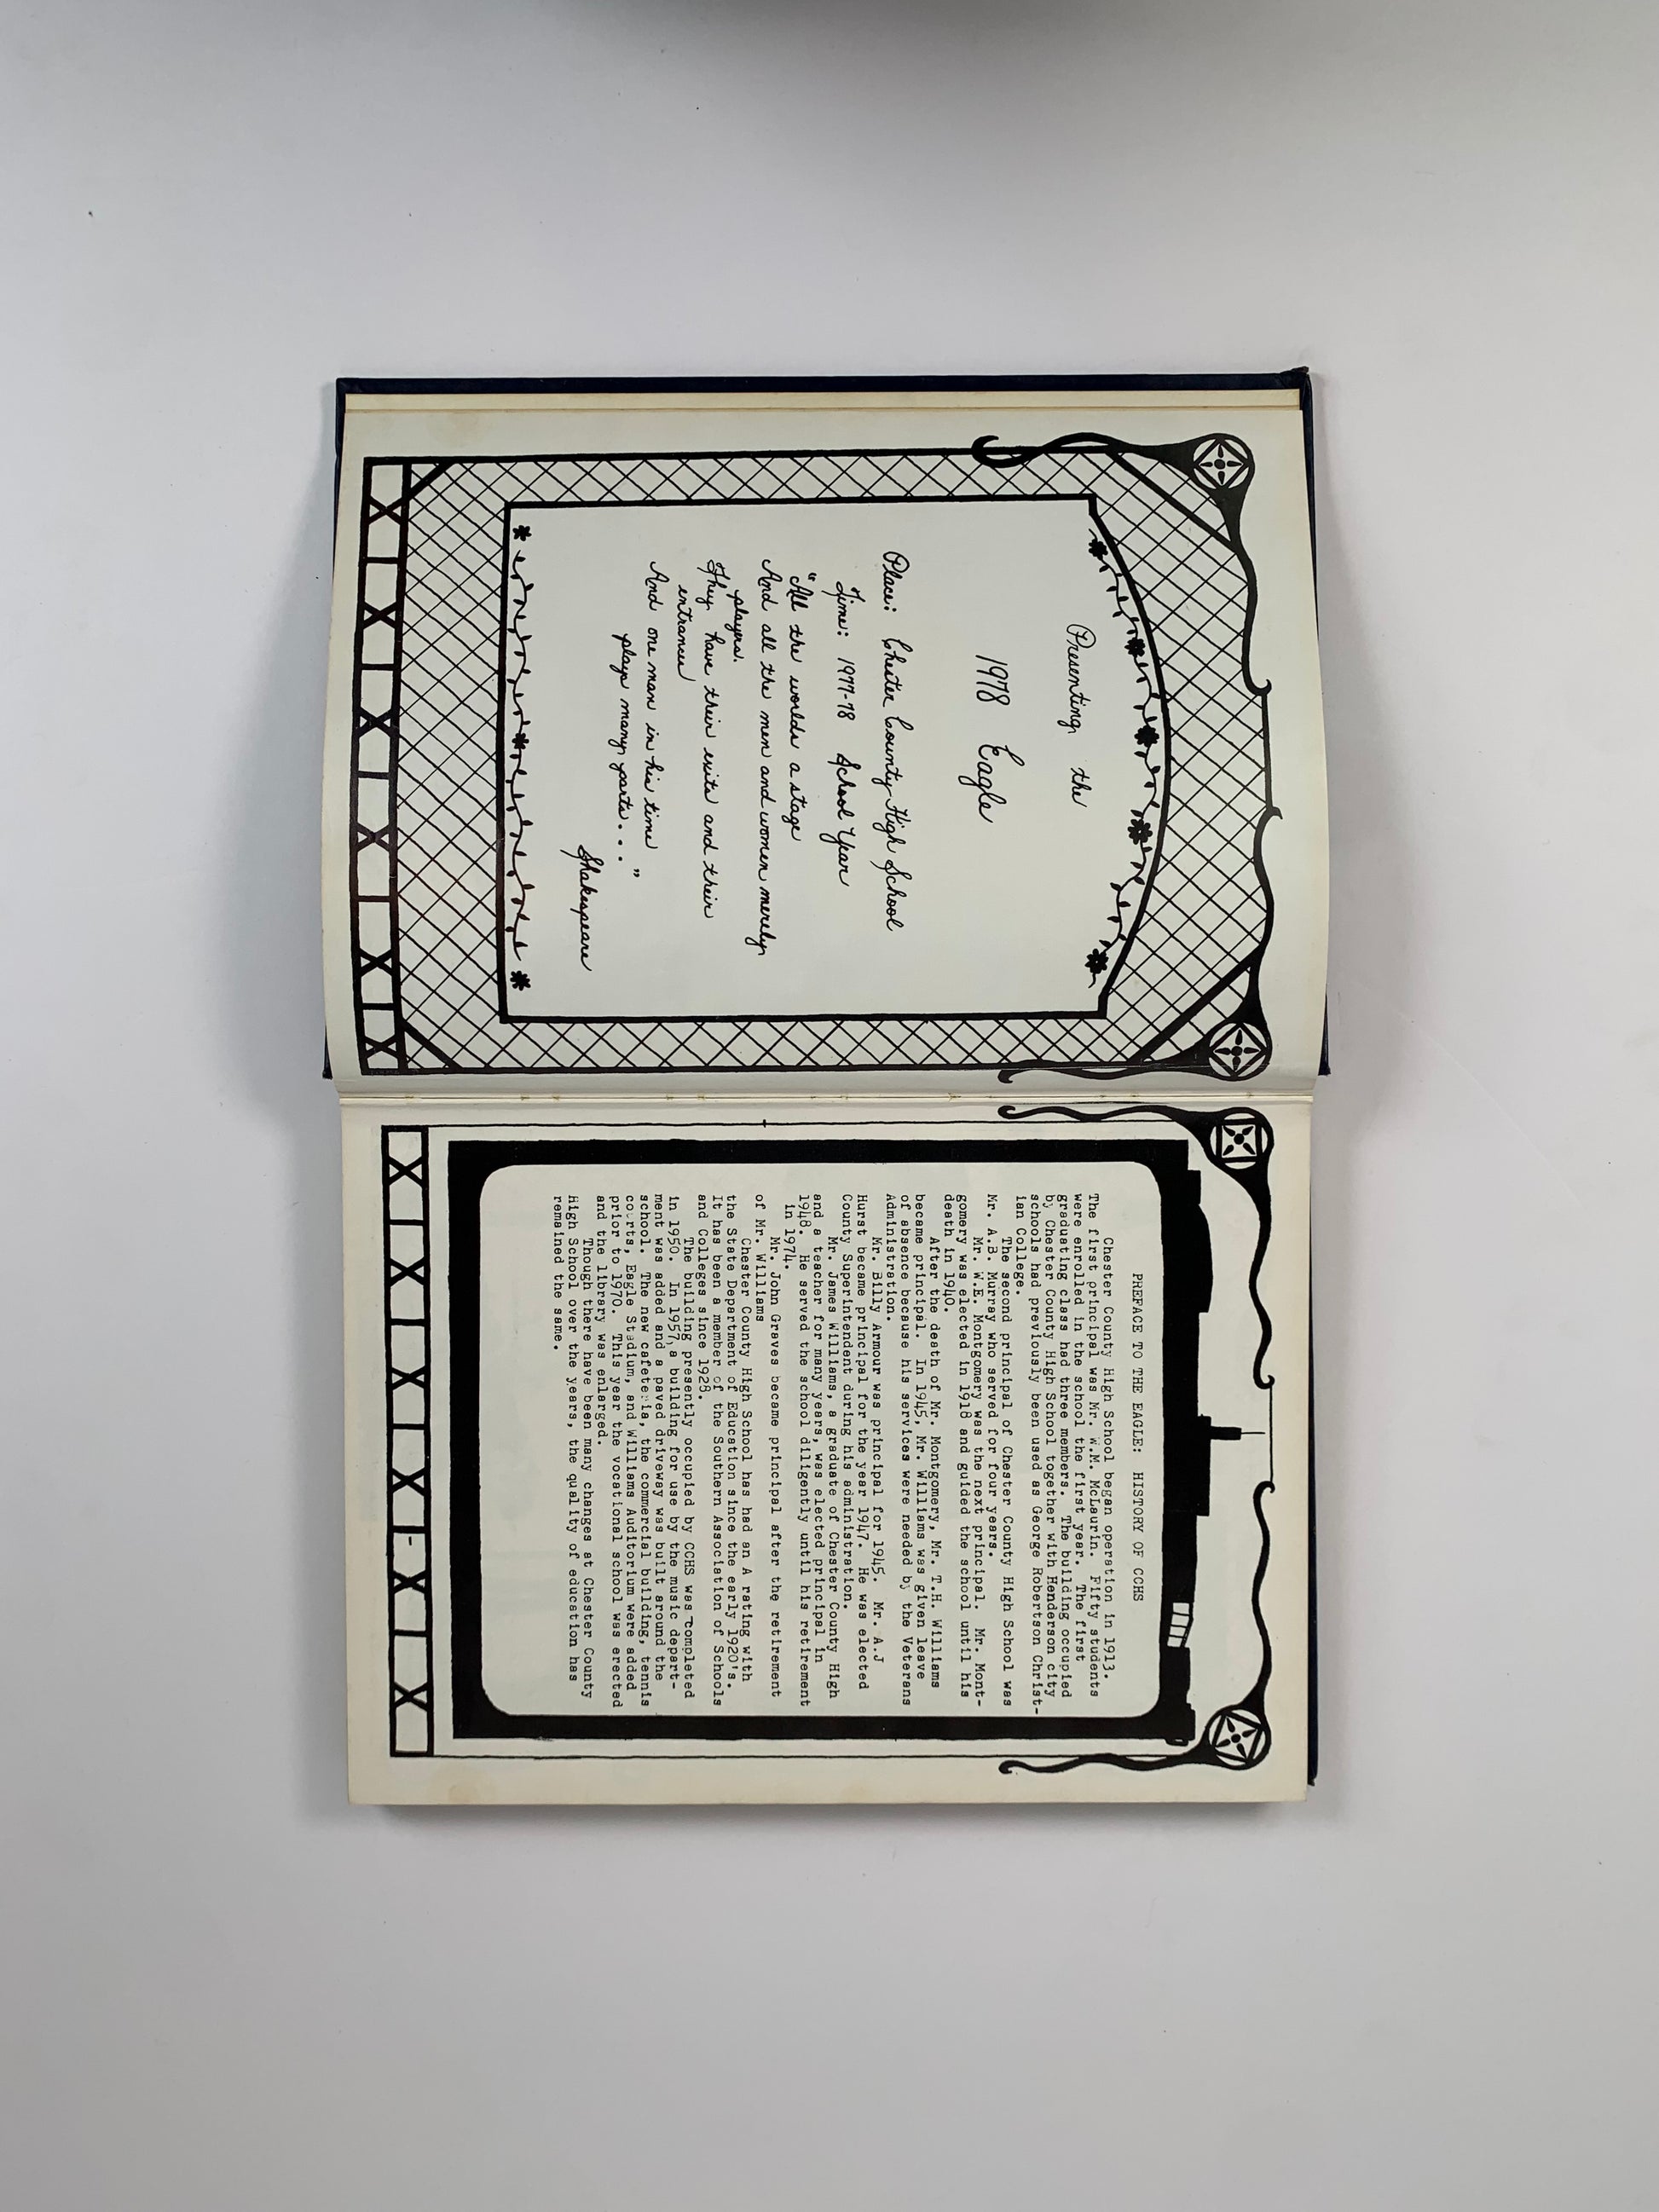 Presenting the
1978 Eagle
Place: Chester County High School
Time: 1977-78 School Year
"All the worlds a stage
And all the men and women merely
players.
They have their exits and their
entrances
And one man in his time
plays many parts..."
Shakespeare
PREFACE TO THE EAGLE: HISTORY OF CCHS
Chester County High School began operation in 1913.
The first principal was Mr. W.M. McLaurin. Fifty students
were enrolled in the school the first year. The first
graduating class had three members. The building occupied
by Chester County High School together with Henderson city
schools had previously been used as George Robertson Christ-
ian College.
The second principal of Chester County High School was
Mr. A.B. Murray who served for four years.
Mr. W.E. Montgomery was the next principal. Mr. Mont-
gomery was elected in 1918 and guided the school until his
death in 1940.
After the death of Mr. Montgomery, Mr. T.H. Williams
became principal. In 1945, Mr. Williams was given leave
of absence because his services were needed by the Veterans
Administration.
Mr. Billy Armour was principal for 1945. Mr. A.J
Hurst became principal for the year 1947. He was elected
County Superintendent during his administration.
Mr. James Williams, a graduate of Chester County High
and a teacher for many years, was elected principal in
1948. He served the school diligently until his retirement
in 1974.
Mr. John Graves became principal after the retirement
of Mr. Williams
Chester County High School has had an A rating with
the State Department of Education since the early 1920's.
It has been a member of the Southern Association of Schools
and Colleges since 1928.
The building presently occupied by CCHS was completed
in 1950. In 1957, a building for use by the music depart-
ment was added and a paved driveway was built around the
school. The new cafeteria, the commercial building, tennis
courts, Eagle Stadium, and Williams Auditorium were added
prior to 1970. This year the vocational school was erected
and the library was enlarged.
Though there have been many changes at Chester County
High School over the years, the quality of education has
remained the same.